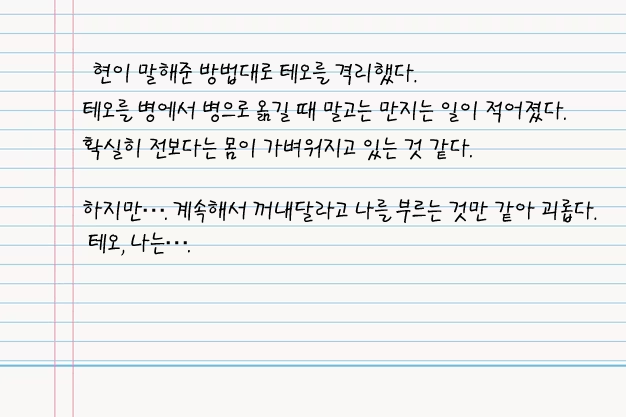 현이 말해준 방법대로 테오를 격리했다.
테오를 병에서 병으로 옮길 때 말고는 만지는 일이 적어졌다.
확실히 전보다는 몸이 가벼워지고 있는 것 같다.
하지만···. 계속해서 꺼내달라고 나를 부르는 것만 같아 괴롭다.
테오, 나는···.